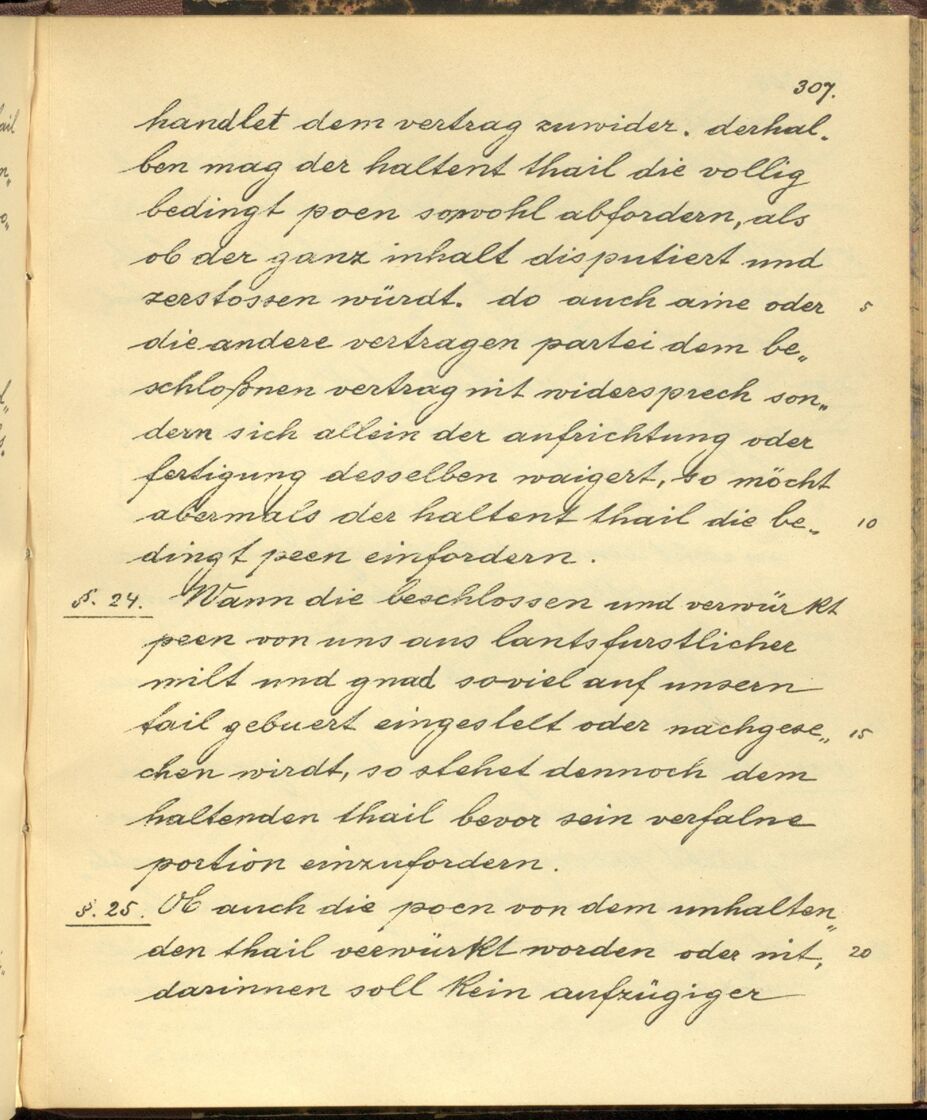 307.
handlet dem vertrag zuwider. derhal-
ben mag der haltent thail die vollig
bedingt poen sowohl abfordern, als
ob der ganz inhalt disputiert und
zerstossen würdt. do auch aine oder 5
die andere vertragen partei dem be„
schloßnen vertrag nit widersprech son„
dern sich allein der aufrichtung oder
fertigung desselben waigert, so möcht
abermals der haltent thail die be„ 10
dingt peen einfordern.
§. 24. Wann die beschlossen und verwürkt
peen von uns aus lantsfurstlicher
milt und gnad soviel auf unsern
tail gebuert eingestelt oder nachgese„ 15
chen wirdt, so stehet dennoch dem
haltenden thail bevor sein verfalne
portion einzufordern.
§. 25. Ob auch die poen von dem unhalten„
den thail verwürkt worden oder nit, 20
darinnen soll kein aufzügiger